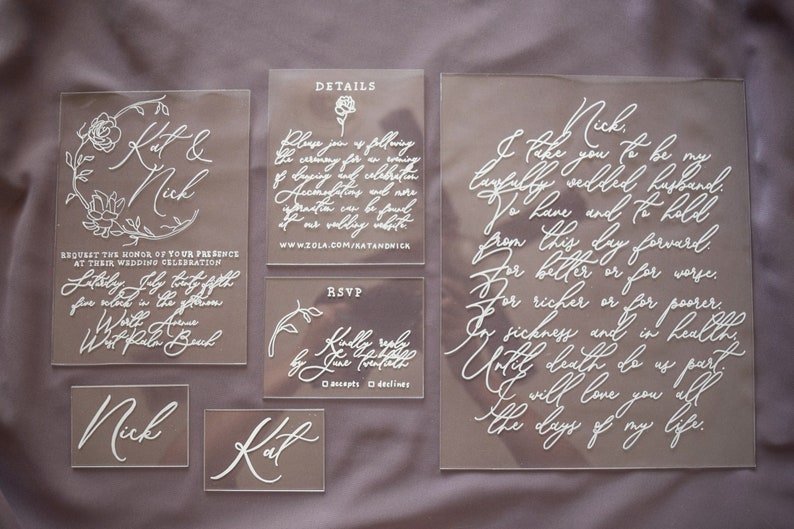 Kat &
Nick
REQUEST THE HONOR OF YOUR PRESENCE
AT THEIR WEDDING CELEBRATION
Saturday, July twenty fifth
five o'clock in the afternoon
Worth Avenue
West Palm Beach
DETAILS
Please join us following
the ceremony for an evening
of dancing and celebration.
Accomodations and more
information can be found
at our wedding website.
WWW.ZOLA.COM/KATANDNICK
RSVP
Kindly reply
by June twentieth
accepts declines
Nick
Kat
Nick,
I take you to be my
lawfully wedded husband.
To have and to hold
from this day forward.
For better or for worse.
For richer or for poorer.
In sickness and in health,
Until death do us part.
I will love you all
the days of my life.